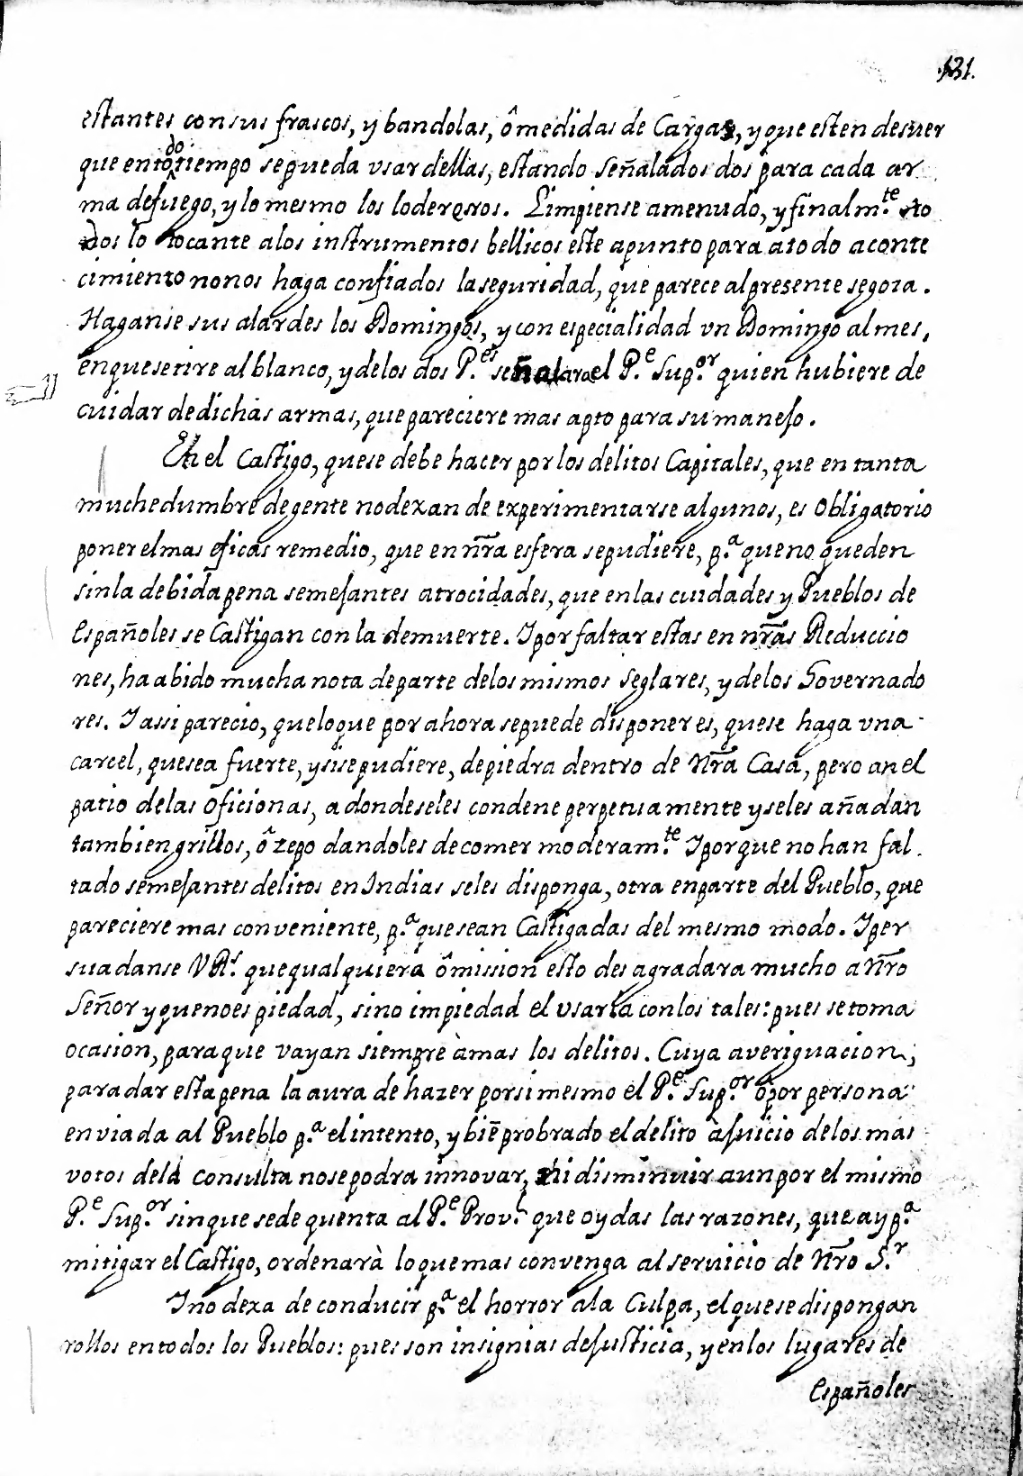 131.
estantes con sus frascos, y bandolas, ô medidas de Cargas, y que esten de suer
que en todo tiempo se pueda usar dellas, estando señalados dos para cada ar
ma de fuego, y lo mesmo los loderosos. Limpiense amenudo, y finalm.te to
dos lo tocante a los instrumentos bellicos este apunto para a todo aconte
cimiento no nos haga confiados la seguridad, que parece al presente se goza.
Haganse sus alardes los Domingos, y con especialidad vn Domingo al mes,
en que se tire al blanco, y de los dos P.es señalara el P.e Sup.or quien hubiere de
cuidar de dichas armas, que pareciere mas apto para su manejo.
En el Castigo, que se debe hacer por los delitos Capitales, que en tanta
muchedumbre de gente no dexan de experimentarse algunos, es Obligatorio
poner el mas eficas remedio, que en nr̃a esfera se pudiere, p.a que no queden
sin la debida pena semejantes atrocidades, que en las cuidades y Pueblos de
Españoles se Castigan con la de muerte. I por faltar estas en nr̃as Reduccio
nes, ha abido mucha nota de parte de los mismos Seglares, y de los Governado
res. I assi parecio, que lo que por ahora se puede disponer es, que se haga vna
carcel, que sea fuerte, y si se pudiere, de piedra dentro de Nr̃a Casa, pero an el
patio de las Oficionas, a donde se les condene perpetuamente y se les añadan
tambien grillos, ô zepo dandoles de comer moderam.te I porque no han fal
tado semejantes delitos en Indias se les disponga, otra en parte del Pueblo, que
pareciere mas conveniente, p.a que sean Castigadas del mesmo modo. I per
suadanse VR.s que qualquiera ômission esto desagradara mucho a Nr̃o
Señor y que no es piedad, sino impiedad el vsarla con los tales: pues se toma
ocasion, para que vayan siempre à mas los delitos. Cuya averiguacion,
para dar esta pena la aura de hazer por si mesmo el P.e Sup.or ô por persona
enviada al Pueblo p.a el intento, y biē probrado el delito à juicio de los mas
votos de la consulta no se podra innovar, ni disminuir aun por el mismo
P.e Sup.or sin que se de quenta al P.e Prov.l que oydas las razones, que ay p.a
mitigar el Castigo, ordenarà lo que mas convenga al servicio de Nr̃o S.r
I no dexa de conducir p.a el horror a la Culpa, el que se dispongan
rollos en todos los Pueblos: pues son insignias de Justicia, y en los lugares de
Españoles